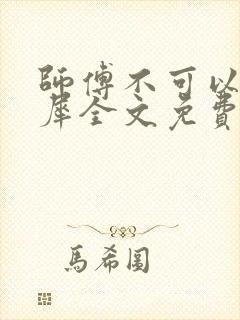 師傅不可以
犀全文免費
馬希圓